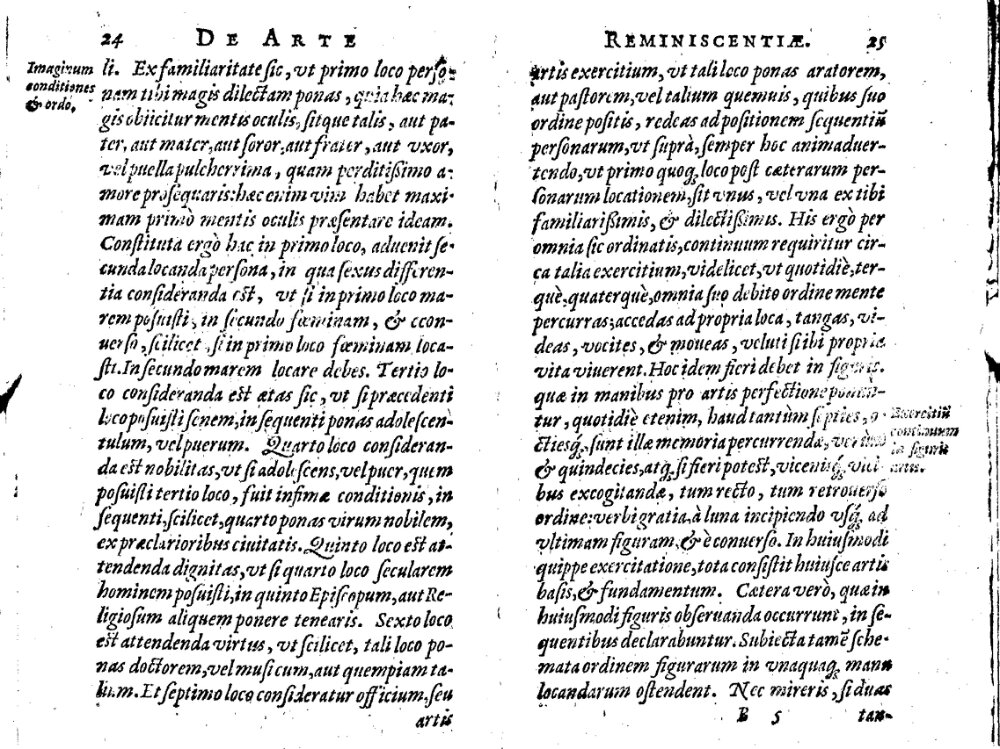 24 DE ARTE
Imaginum
conditiones
& ordo.
li. Ex familiaritate sic, vt primo loco perso-
nam tibi magis dilectam ponas, quia hæc ma-
gis obiicitur mentis oculis, sitque talis, aut pa-
ter, aut mater, aut soror, aut frater, aut vxor,
vel puella pulcherrima, quam perditissimo a-
more prosequaris: hæc enim vim habet maxi-
mam primò mentis oculis præsentare ideam.
Constituta ergò hac in primo loco, aduenit se-
cunda locanda persona, in qua sexus differen-
tia consideranda est, vt si in primo loco ma-
rem posuisti, in secundo fœminam, & è con-
uerso, scilicet, si in primo loco fœminam loca-
sti. In secundo marem locare debes. Tertio lo-
co consideranda est ætas sic, vt si præcedenti
loco posuisti senem, in sequenti ponas adolescē-
tulum, vel puerum. Quarto loco consideran-
da est nobilitas, vt si adolescens, vel puer, quem
posuisti tertio loco, fuit infimæ conditionis, in
sequenti, scilicet, quarto ponas virum nobilem,
ex præclarioribus ciuitatis. Quinto loco est at-
tendenda dignitas, vt si quarto loco secularem
hominem posuisti, in quinto Episcopum, aut Re-
ligiosum aliquem ponere tenearis. Sexto loco
est attendenda virtus, vt scilicet, tali loco po-
nas doctorem, vel musicum, aut quempiam ta-
lium. Et septimo loco consideratur officium, seu
artis
REMINISCENTIÆ. 25
artis exercitium, vt tali loco ponas aratorem,
aut pastorem, vel talium quemuis, quibus suo
ordine positis, redeas ad positionem sequentiū
personarum, vt suprà, semper hoc animaduer-
tendo, vt primo quoq; loco post cæterarum per-
sonarum locationem, sit vnus, vel vna ex tibi
familiarissimis, & dilectissimis. His ergò per
omnia sic ordinatis, continuum requiritur cir-
ca talia exercitium, videlicet, vt quotidiè, ter-
què, quaterquè, omnia suo debito ordine mente
percurras; accedas ad propria loca, tangas, vi-
deas, vocites, & moueas, veluti si ibi propria
vita viuerent. Hoc idem fieri debet in figuris.
quæ in manibus pro artis perfectione ponun-
tur, quotidiè etenim, haud tantùm septies, o-
ctiesq; sunt illæ memoria percurrendæ, verùm
& quindecies, atq; si fieri potest, viceniq; vici-
bus excogitandæ, tum recto, tum retrouerso
ordine: verbi gratia, à luna incipiendo vsq; ad
vltimam figuram, & è conuerso. In huiusmodi
quippe exercitatione, tota consistit huiusce artis
basis, & fundamentum. Cætera verò, quæ in
huiusmodi figuris obseruanda occurrunt, in se-
quentibus declarabuntur. Subiecta tamē sche-
mata ordinem figurarum in vnaquaq; manu
locandarum ostendent. Nec mireris, si duas
Exercitiū
continuum
in figuris
artis.
B 5 tan-